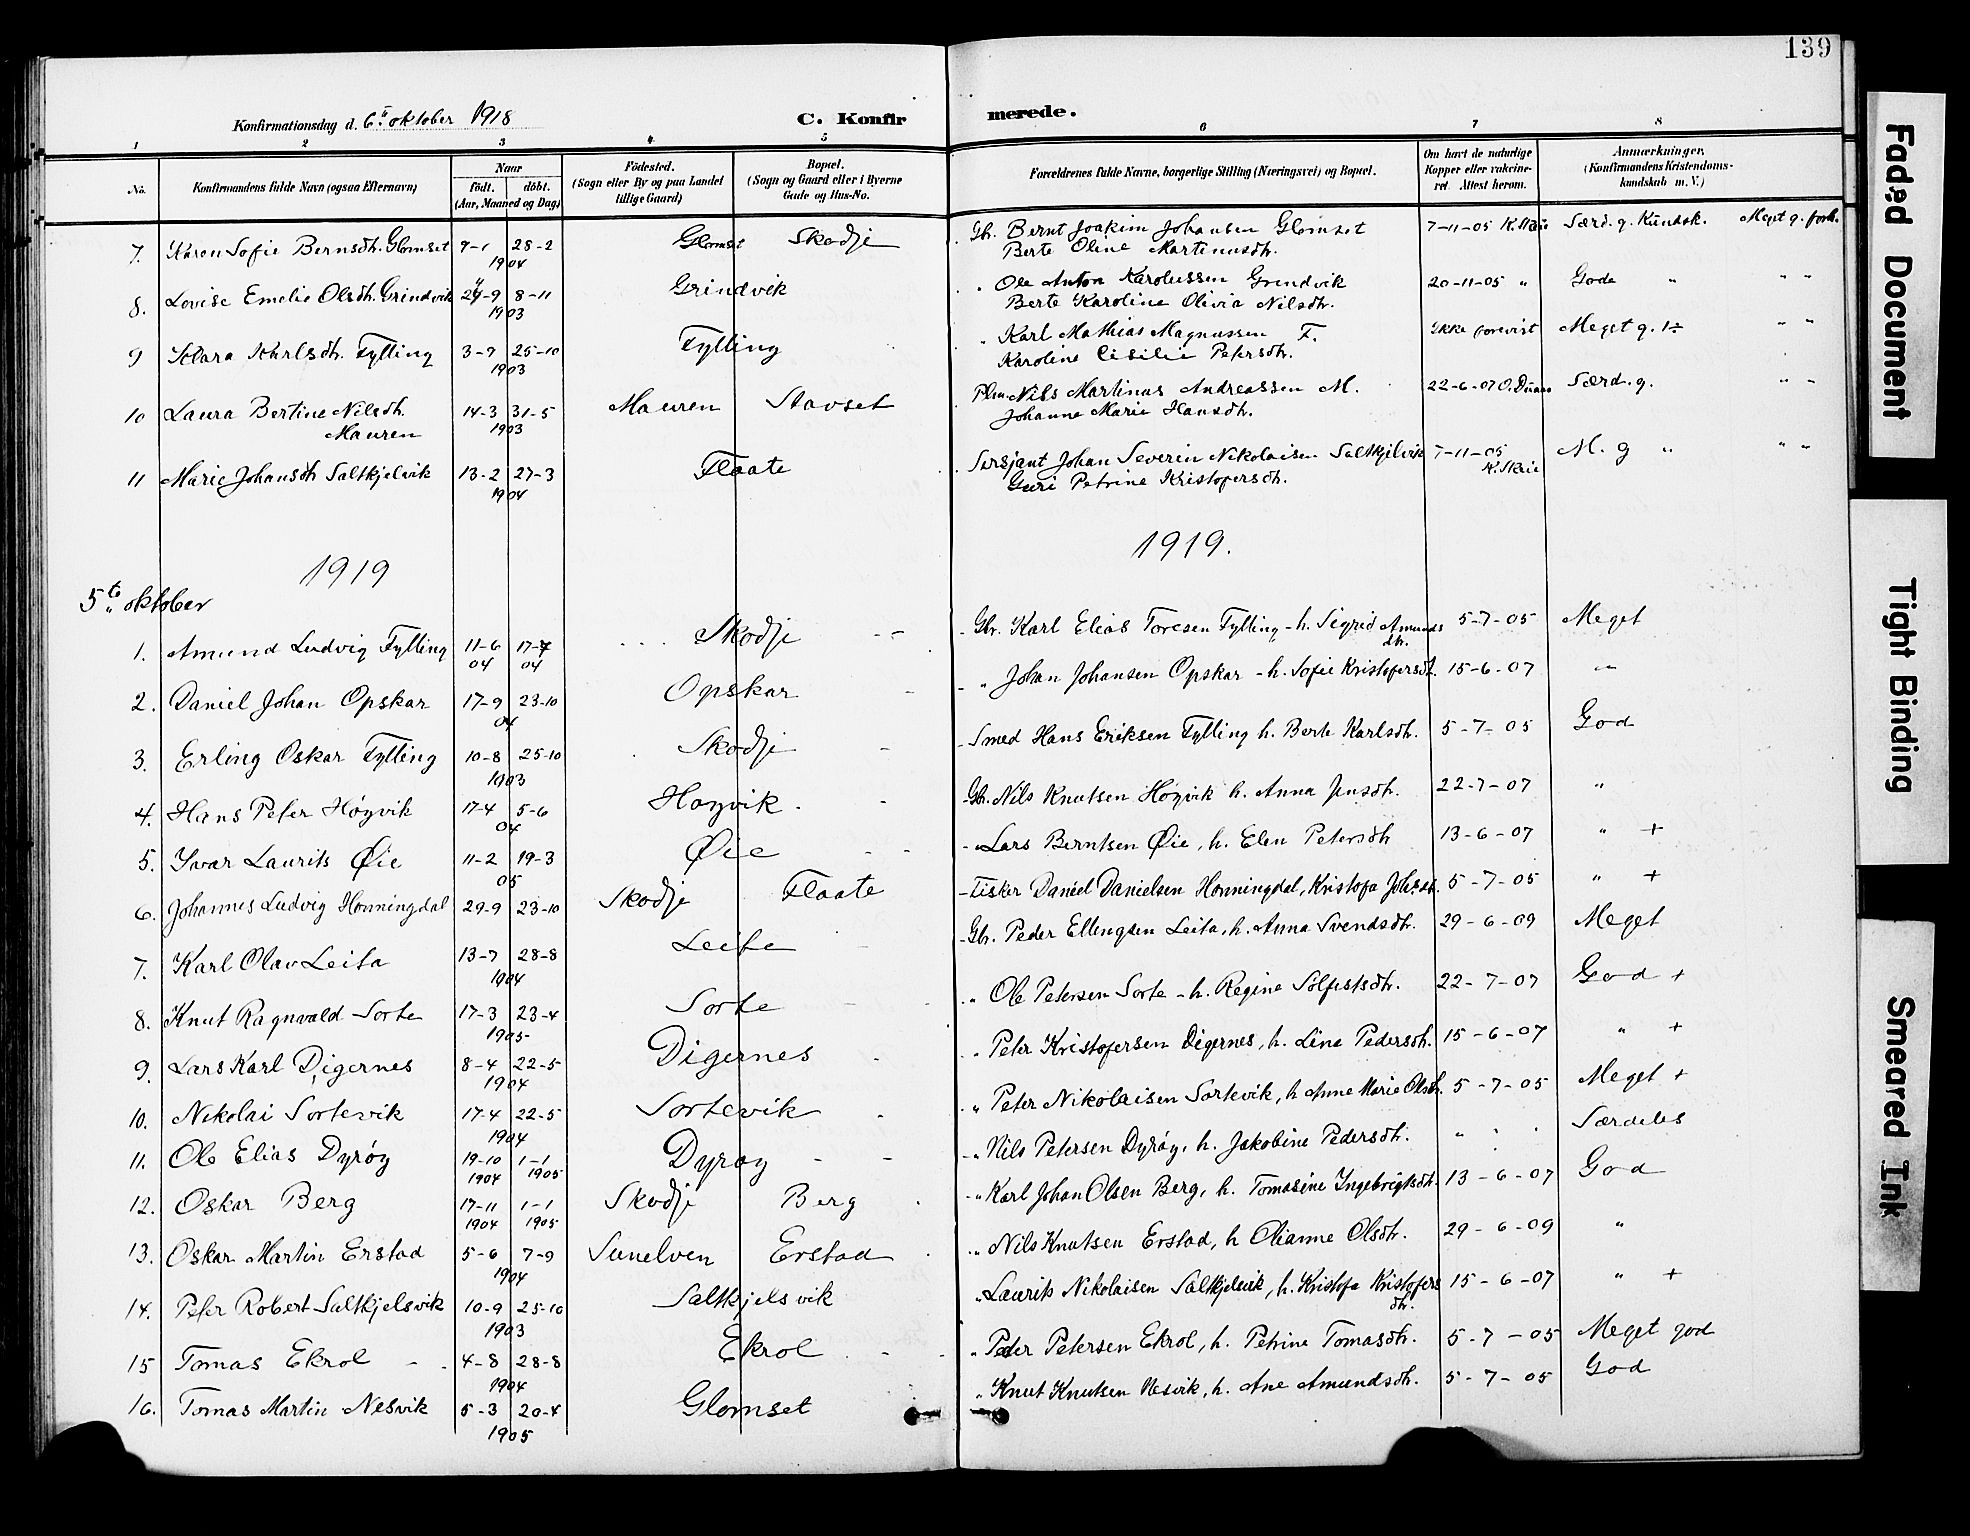 139
Konfirmationsdag d. 6te oktober 1918 C. Konfirmerede.
1 2 3 4 5 6 7 8
No. Konfirmandens fulde Navn (ogsaa Efternavn) Naar født. døbt. (Aar, Maaned og Dag) Fødested. (Sogn eller By og paa Landet tillige Gaard) Bopæl. (Sogn og Gaard eller i Byerne Gade og Hus-No. Forældrenes fulde Navne, borgerlige Stilling (Næringsvei) og Bopæl. Om havt de naturlige Kopper eller vakcineret. Attest herom. Anmærkninger. (Konfirmandens Kristendomskundskab m. V.)
7. Karen Sofie Bernsdtr. Glomset 9-1 28-2 1904 Glomset Skodje Gbr. Bernt Joakim Johansen Glomset 7-11-05 Særd. g. Kundsk. Meget g. forh.
Berte Oline Martinusdtr.
8. Lovise Emelie Olsdtr. Grindvik 24-9 8-11 1903 Grindvik " Ole Anton Karolussen Grindvik 20-11-05 " Gode " " "
Berte Karoline Olivia Nilsdtr.
9 Klara Karlsdtr. Fylling 3-9 25-10 1903 Fylling " Karl Mathias Magnussen F. Ikke forevist Meget g. " "
Karoline Cisilie Petersdtr.
10 Laura Bertine Nilsdtr. 14-3 31-5 1903 Mauren Stavset Plm. Nils Martinus Andreassen M. 22-6-07 Særd. g. " "
Mauren Johanne Marie Hansdtr.
11 Marie Johansdtr Saltkjelvik 13-2 27-3 1904 Flaate Sersjant Johan Severin Nikolaisen Saltkjelvik 7-11-05 M. g " " "
Guri Petrine Kristofersdtr.
1919 1919.
5te oktober
1. Amund Ludvig Fylling 11-6 04 17-7 04 Skodje Gbr. Karl Elias Toresen Fylling - h. Sigrid Amundsdtr. 5-7-05 Meget
2. Daniel Johan Opskar 17-9 23-10 04 Opskar " Johan Johansen Opskar - h. Sofie Kristofersdt. 15-6-07 "
3. Erling Oskar Fylling 10-8 25-10 1903 Skodje Smed Hans Eriksen Fylling h. Berte Karlsdtr. 5-7-05 God
4. Hans Peter Høgvik 17-4 5-6 04 Høgvik Gbr. Nils Knutsen Høgvik h. Anna Jensdtr. 22-7-07 "
5. Ivar Laurits Øie 11-2 19-3 05 Øie " Lars Berntsen Øie, h. Elen Petersdtr 13-6-07 " +
6. Johannes Ludvig Honningdal 29-9 23-10 Skodje Flaate Fisker Daniel Danielsen Honningdal, Kristofa 5-7-05 " +
7. Karl Olav Leita 13-7 28-8 1904 Leite Gbr. Peder Ellengsen Leita, h. Anna Svendsdtr. 29-6-09 Meget
8. Knut Ragnvald Sorte 17-3 23-4 1905 Sorte " Ole Petersen Sorte - h. Regine Sølfestsdtr. 22-7-07 God +
9. Lars Karl Digernes 8-4 22-5 1904 Digernes " Peter Kristofersen Digernes, h. Line Pedersdtr. 15-6-07 " +
10. Nikolai Sortevik 17-4 22-5 1904 Sortevik " Peter Nikolaisen Sortevik, h Anne Marie Olsdtr. 5-7-05 Meget +
11. Ole Elias Dyrøy 19-10 1904 1-1 1905 Dyrøy " Nils Petersen Dyrøy, h. Jakobine Pedersdtr. " " " Særdeles
12. Oskar Berg 17-11 1904 1-1 1905 Skodje Berg " Karl Johan Olsen Berg, h. Tomasine Ingebrigtsdtr. 13-6-07 God
13. Oskar Martin Erstad 5-6 7-9 1904 Sunelven Erstad " Nils Knutsen Erstad, h Olianne Olsdtr. 29-6-09 "
14. Peter Robert Saltkjelsvik 10-9 25-10 1903 Saltkjelsvik " Laurits Nikolaisen Saltkjelsvik, h. Kristofa Kristofersdtr. 15-6-07 " +
15 Tomas Ekrol 4-8 28-8 1904 Ekrol " Peder Petersen Ekrol, h. Petrine Tomasdtr. 5-7-05 Meget god
16. Tomas Martin Nesvik 5-3 20-4 1905 Glomset " Knut Knutsen Nesvik, h. Ane Amundsdtr. 5-7-05 God
Faded Document
Tight Binding
Smeared Ink